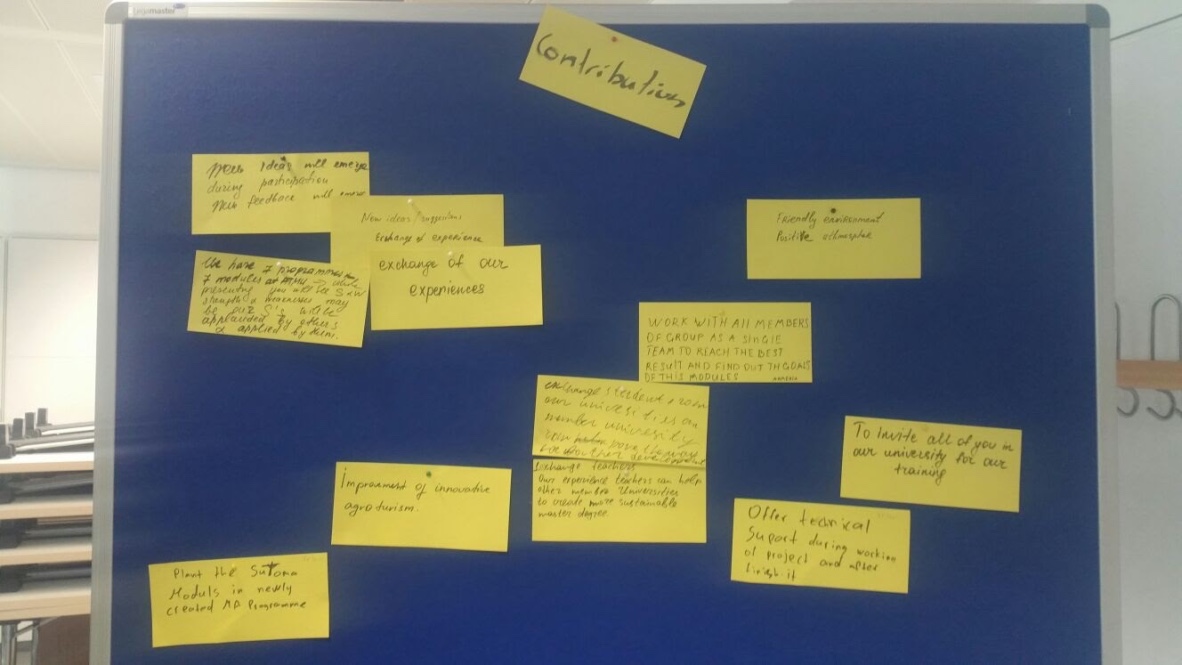 Legamaster
Contribution
New ideas will emerge
during participation
New feedback will
New ideas / suggestions
Exchange of experience
exchange of our
experiences
We have 7 programmes
7 modules at
presenting you will see S & W
strength & weaknesses may
be our S's will be
applauded by others
& applied by them.
Friendly environment
Positive
WORK WITH All MEMBERS
OF GROUP AS A SINGLE
TEAM TO REACH THE BEST
RESUlT AND FIND OUT TH GOALS
OF THIS MODULES
exchange student from
our universities on
member university
Exchange teachers
Our experience teachers can help
other member Universities
to create more sustainable
master degree
To invite all of you in
our university for our
training
Improvment of innovative
agroturism.
Offer technical
Suport during working
of project and after
finish it
Plant the SuToMa
Moduls in newly
created MA Programme